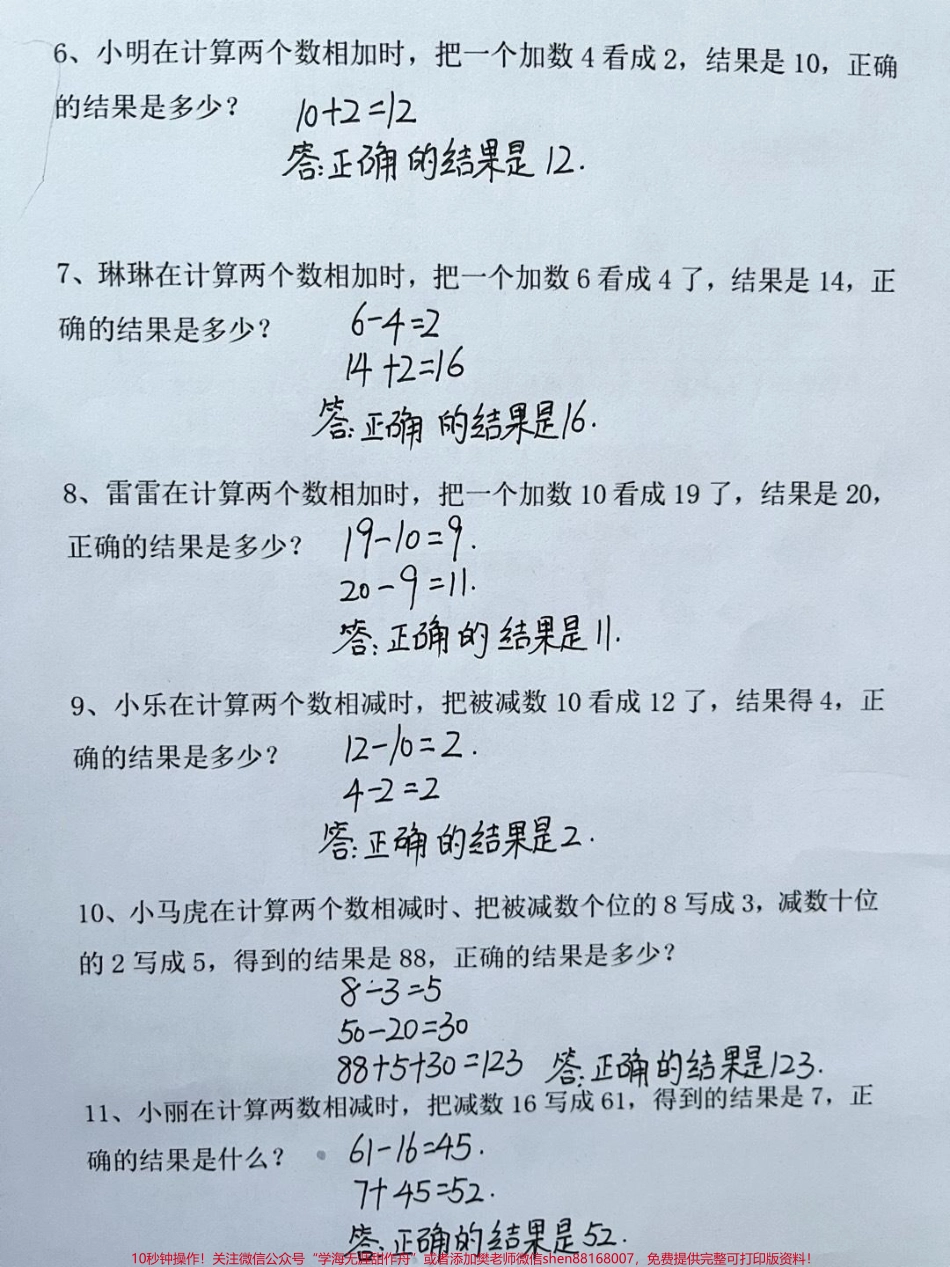 6、小明在计算两个数相加时，把一个加数 4 看成 2，结果是 10，正确
的结果是多少？
10+2=12
答:正确的结果是 12.
7、琳琳在计算两个数相加时，把一个加数 6 看成 4 了，结果是 14，正
确的结果是多少？
6-4=2
14+2=16
答:正确的结果是16.
8、雷雷在计算两个数相加时，把一个加数 10 看成 19 了，结果是 20，
正确的结果是多少？
19-10=9.
20-9=11.
答:正确的结果是11.
9、小乐在计算两个数相减时，把被减数 10 看成 12 了，结果得 4，正
确的结果是多少？
12-10=2.
4-2=2
答:正确的结果是2.
10、小马虎在计算两个数相减时、把被减数个位的 8 写成 3，减数十位
的 2 写成 5，得到的结果是 88，正确的结果是多少？
8-3=5
50-20=30
88+5+30=123 答:正确的结果是123.
11、小丽在计算两数相减时，把减数 16 写成 61，得到的结果是 7，正
确的结果是什么？
61-16=45.
7+45=52.
答:正确的结果是52.
10秒钟操作！关注微信公众号“学海无涯甜作舟”或者添加樊老师微信shen88168007，免费提供完整可打印版资料！